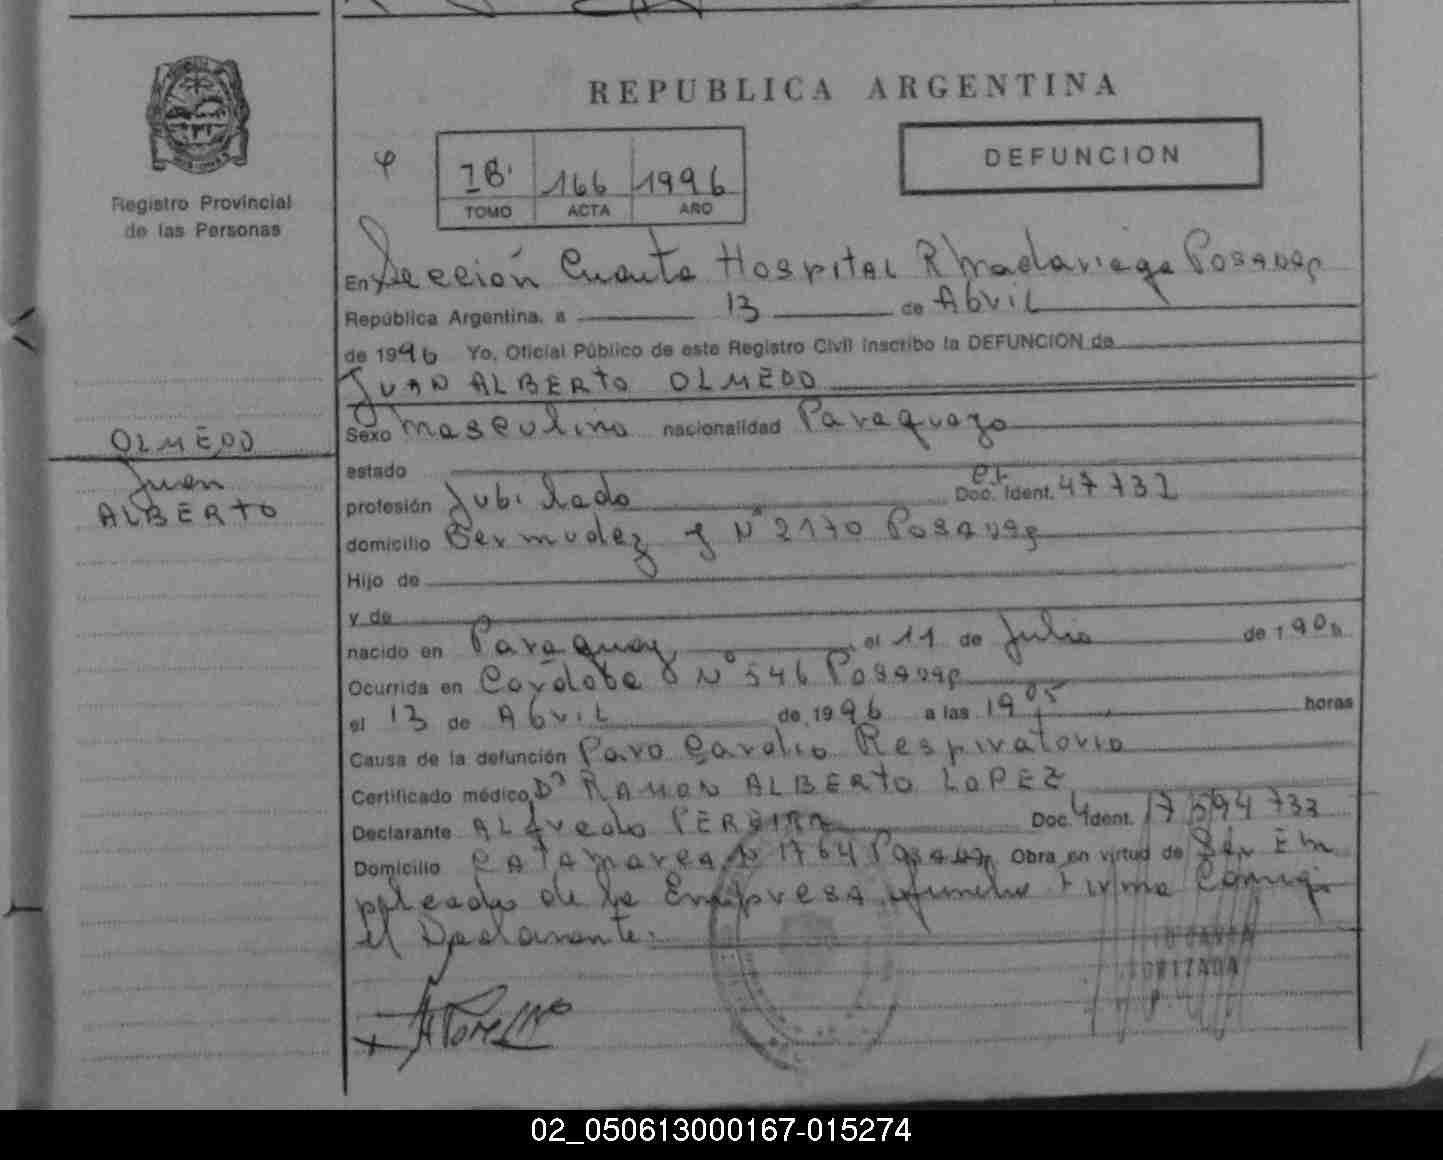 REPUBLICA ARGENTINA
DEFUNCION
166 1996
TOMO ACTA AÑO
Registro Provincial
de las Personas
En Sección Cuarta Hospital R Madariaga Posadas
República Argentina, a 13 de Abril
de 1996 Yo, Oficial Público de este Registro Civil inscribo la DEFUNCION de
JUAN ALBERTO OLMEDO
Sexo Masculino nacionalidad Paraguayo
OLMEDO
Juan
ALBERTO
estado
profesión Jubilado Doc. Ident. 47732
domicilio Bermudez y Nº 2170 Posadas
Hijo de
y de
nacido en Paraguay el 11 de Julio de 190
Ocurrida en Cordoba Nº 546 Posadas
el 13 de Abril de 1996 a las 19 05 horas
Causa de la defunción Paro Cardio Respiratorio
Certificado médico Dr RAMON ALBERTO LOPEZ
Declarante ALfredo PEREIRA Doc. Ident. 17 594 733
Domicilio CATAMARCA Nº 1764 Posadas Obra en virtud de Ser Em
pleado de la Empresa funebre Firma Conmigo
el Declarante.
02_050613000167-015274